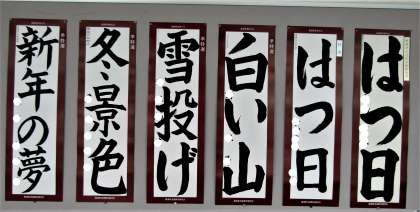 はつ日
はつ日
白い山
雪投げ
冬景色
新年の夢